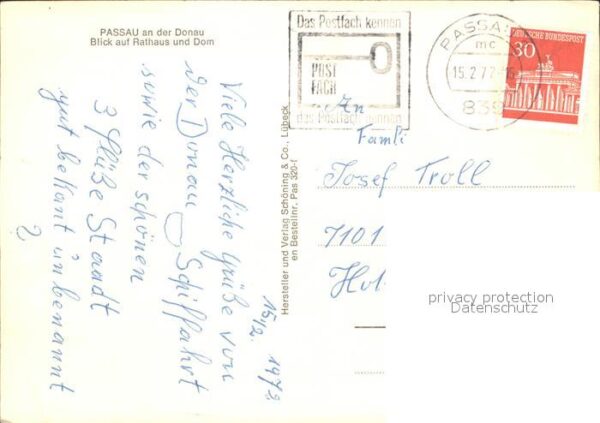 PASSAU an der Donau
Blick auf Rathaus und Dom
15/2. 1972
Viele Herzliche Grüße von
der Donau Schiffahrt
sowie der schönen
3 flüße Staadt
gut bekant u̇n benannt
Hersteller und Verlag Schöning & Co., Lübeck
en Bestellnr. Pas 320-f
Das Postfach kennen
POST
FACH
das Postfach nennen
PASSAU
mc
15.2.72-16
839
DEUTSCHE BUNDESPOST
30
An
Famli
Josef Troll
7101
privacy protection
Datenschutz